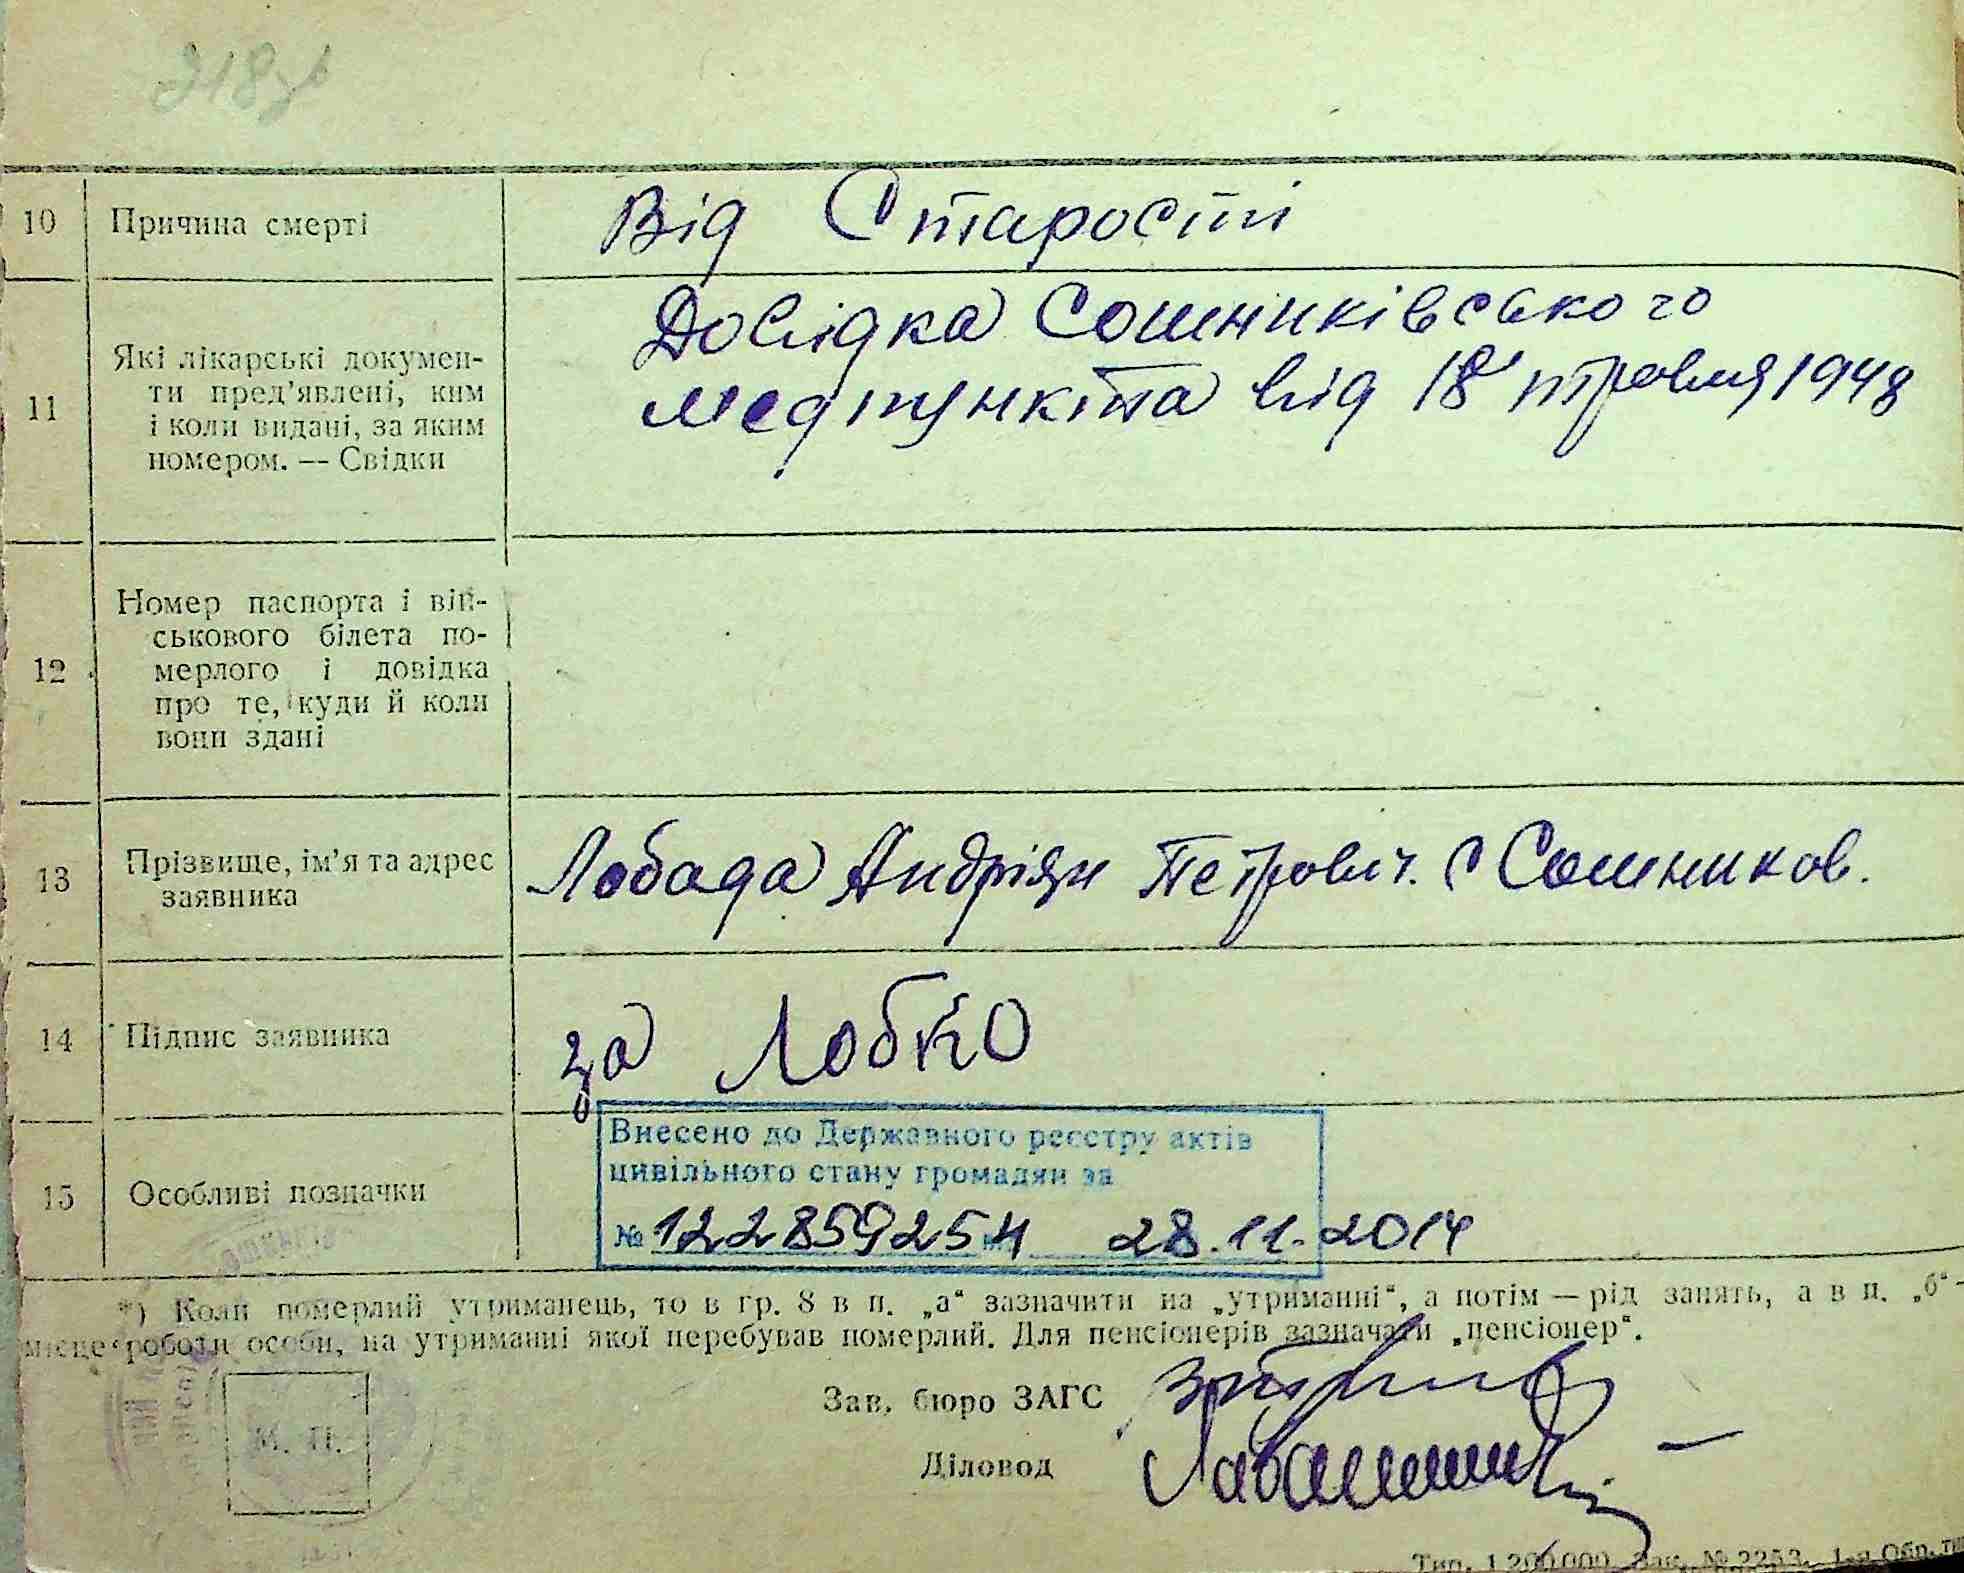 10 Причина смерті Від Старости
11 Які лікарські докумен-
ти пред'явлені, ким
і коли видані, за яким
номером. — Свідки
Довідка Сошниківського
медпункта від 18 травня 1948
12 Номер паспорта і вій-
ськового білета по-
мерлого і довідка
про те, куди й коли
вони здані
13 Прізвище, ім'я та адрес
заявника
Лобада Андріян Петрович. С Сошников.
14 Підпис заявника за Лобко
15 Особливі позначки
Внесено до Державного реєстру актів
цивільного стану громадян за
№ 122859254 28.11.2014
*) Коли померлий утриманець, то в гр. 8 в п. „а“ зазначити на „утриманні“, а потім — рід занять, а в п. „б“ -
місце роботи особи, на утриманні якої перебував померлий. Для пенсіонерів зазначати „пенсіонер“.
Зав. бюро ЗАГС
М. П.
Діловод
Тип. 1 200.000 Зак. № 2253. 1-я Обр. ти